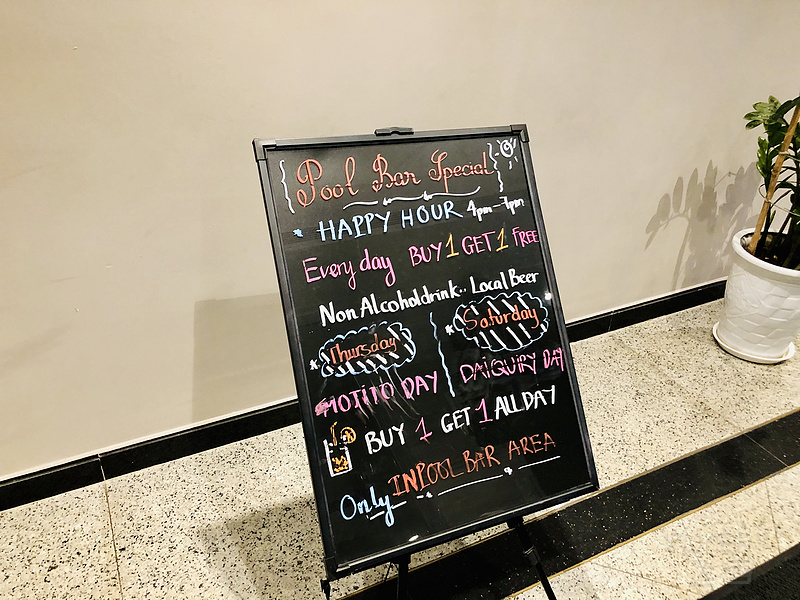 Pool Bar Special
HAPPY HOUR 4pm-7pm
Every day BUY 1 GET 1 FREE
Non Alcoholdrink.. Local Beer
Thursday Saturday
MOJITO DAY DAIQUIRY DAY
BUY 1 GET 1 ALL DAY
Only IN POOL BAR AREA